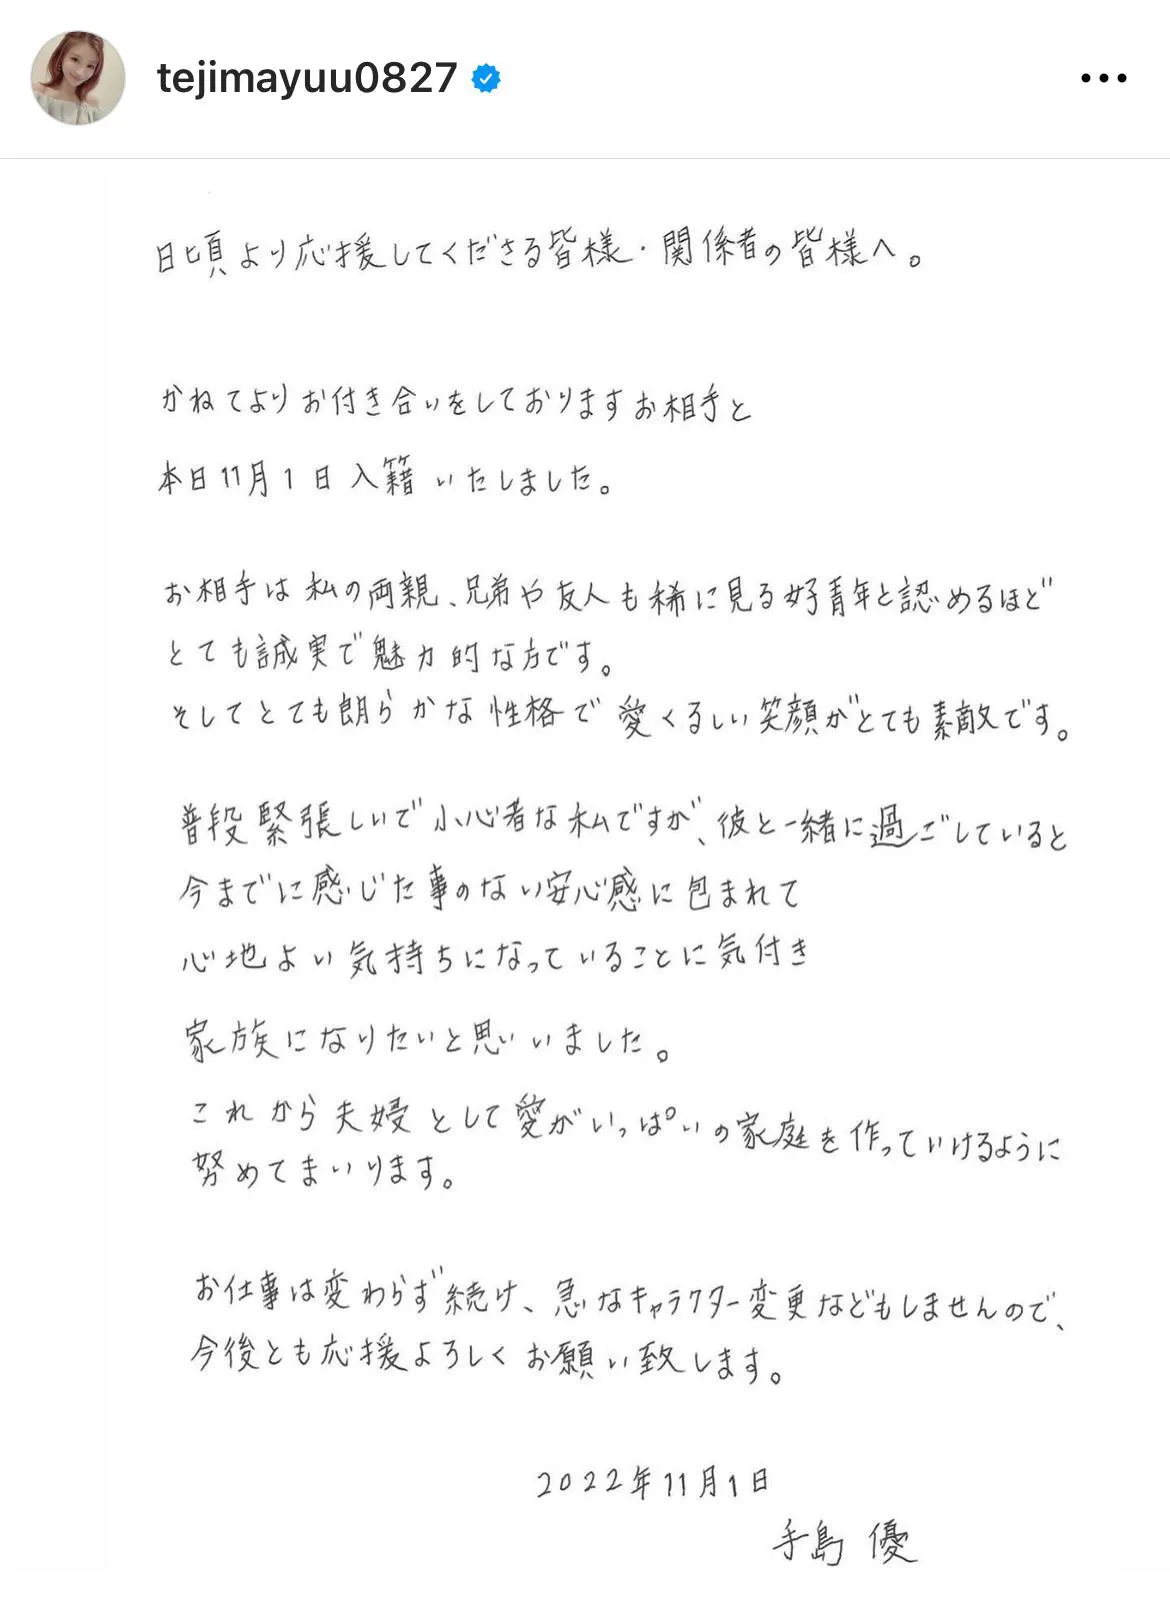 tejimayuu0827
日頃より応援してくださる皆様・関係者の皆様へ。
かねてよりお付き合いをしておりますお相手と
本日11月1日入籍いたしました。
お相手は私の両親、兄弟や友人も稀に見る好青年と認めるほど
とても誠実で魅力的な方です。
そしてとても朗らかな性格で愛くるしい笑顔がとても素敵です。
普段緊張しいで小心者な私ですが、彼と一緒に過ごしていると
今までに感じた事のない安心感に包まれて
心地よい気持ちになっていることに気付き
家族になりたいと思いいました。
これから夫婦として愛がいっぱいの家庭を作っていけるように
努めてまいります。
お仕事は変わらず続け、急なキャラクター変更などもしませんので、
今後とも応援よろしくお願い致します。
2022年11月1日
手島 優